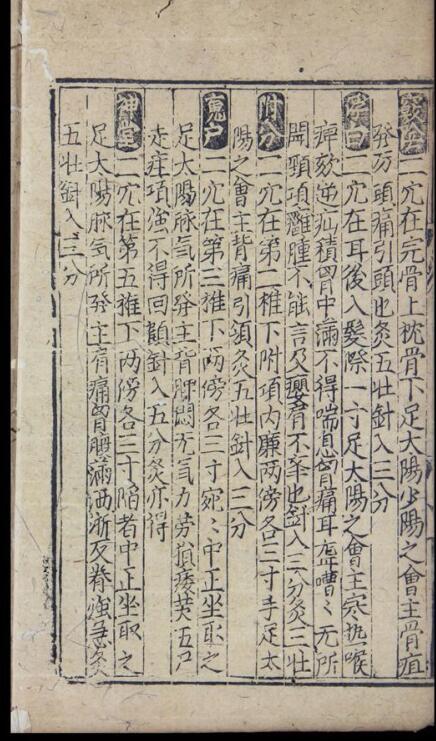 竅陰二穴在完骨上枕骨下足太陽少陽之會主骨疽
發厉頭痛引頭也灸五壮針入三分
浮白二穴在耳後入髮際一寸足太陽之會主寒热喉
痺欬逆疝積胷中滿不得喘息胷痛耳聾嘈〻无所
聞頸項癰腫不能言及癭肩不舉也針入三分灸三壮
附分二穴在第二椎下附項内廉两傍各三寸手足太
陽之會主背痛引頷灸五壮針入三分
魄户二穴在第三椎下两傍各三寸宛〻中正坐取之
足太陽脉氣所發主背胛悶无氣力劳損痿黄五尸
走疰項強不得回顧針入五分灸亦得
神堂二穴在第五椎下两傍各三寸陷者中正坐取之
足太陽脉氣所發主肩痛胷腹滿洒淅反脊強急灸
五壮針入三分